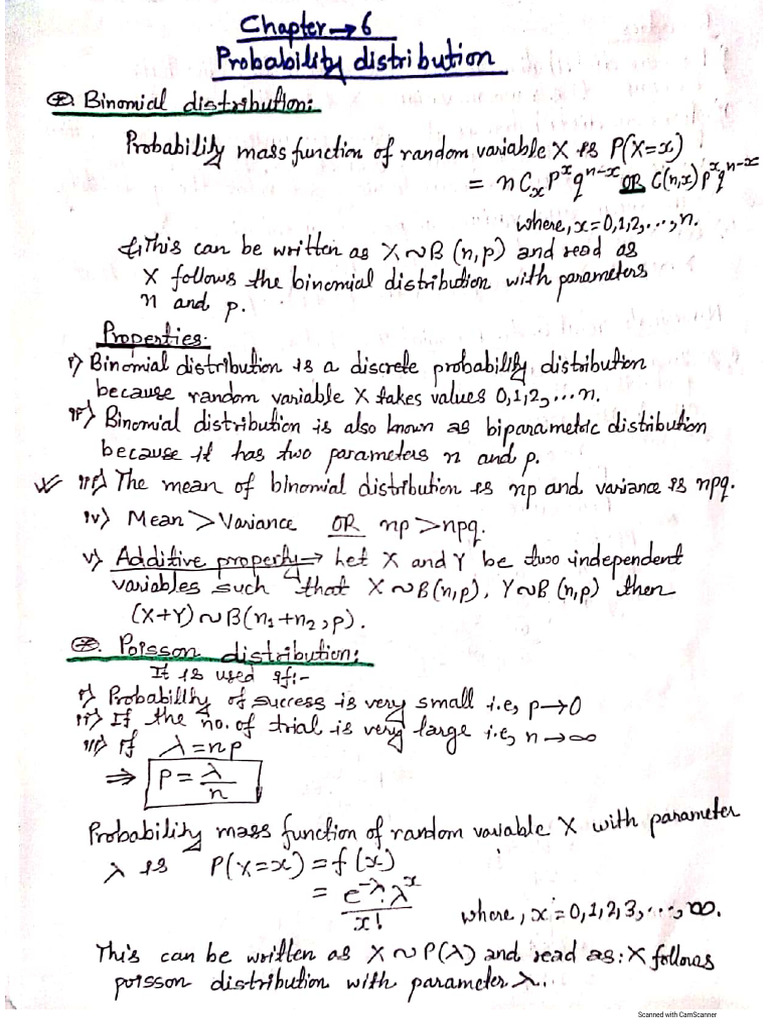 Chapter→6
Probability distribution
⊛. Binomial distribution:
Probability mass function of random variable X is P(X=x)
= nCₓ pˣ qⁿ⁻ˣ OR C(n,x) pˣ qⁿ⁻ˣ
where, x=0,1,2,...,n.
This can be written as X~B (n,p) and read as
X follows the binomial distribution with parameters
n and p.
Properties.
i) Binomial distribution is a discrete probability distribution
because random variable X takes values 0,1,2,...n.
ii) Binomial distribution is also known as biparametric distribution
because it has two parameters n and p.
iii) The mean of binomial distribution is np and variance is npq.
iv) Mean > Variance OR np > npq.
v) Additive property→ Let X and Y be two independent
variables such that X~B(n,p), Y~B(n,p) then
(X+Y)~B(n₁+n₂,p).
⊛. Poisson distribution:
It is used if:-
i) Probability of success is very small i.e, p→0
ii) If the no. of trial is very large i.e, n→∞
iii) if λ=np
⇒ P = λ/n
Probability mass function of random variable X with parameter
λ is P(X=x) = f(x)
= e^-λ.λˣ/x! where, x=0,1,2,3,...,∞.
This can be written as X~P(λ) and read as: X follows
poisson distribution with parameter λ.
Scanned with CamScanner